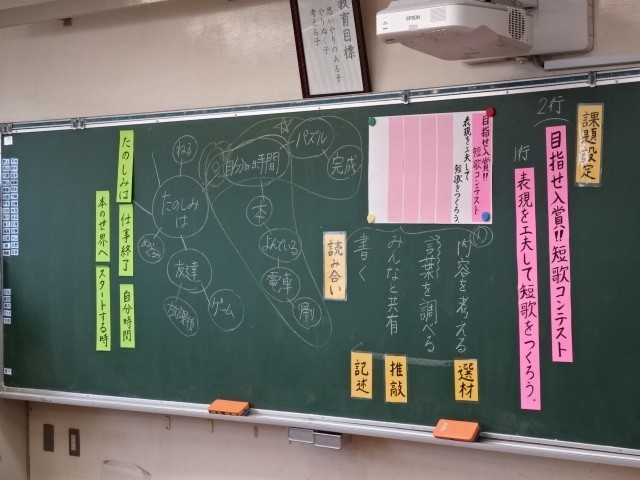 教育目標
思いやりのある子
やりぬく子
考える子
EPSON
課題設定
2行
目指せ入賞!!短歌コンテスト
1行
表現を工夫して短歌をつくろう。
目指せ入賞!!短歌コンテスト
表現を工夫して
短歌をつくろう。
内容を考える
言葉を調べる
みんなと共有
書く
選材
推敲
記述
読み合い
パズル
完成
自分の時間
本
よんでいる
電車
帰り
ねる
たのしみは
友達
ゲーム
放課後
たのしみは
仕事終了
自分時間
本の世界へ
スタートする時